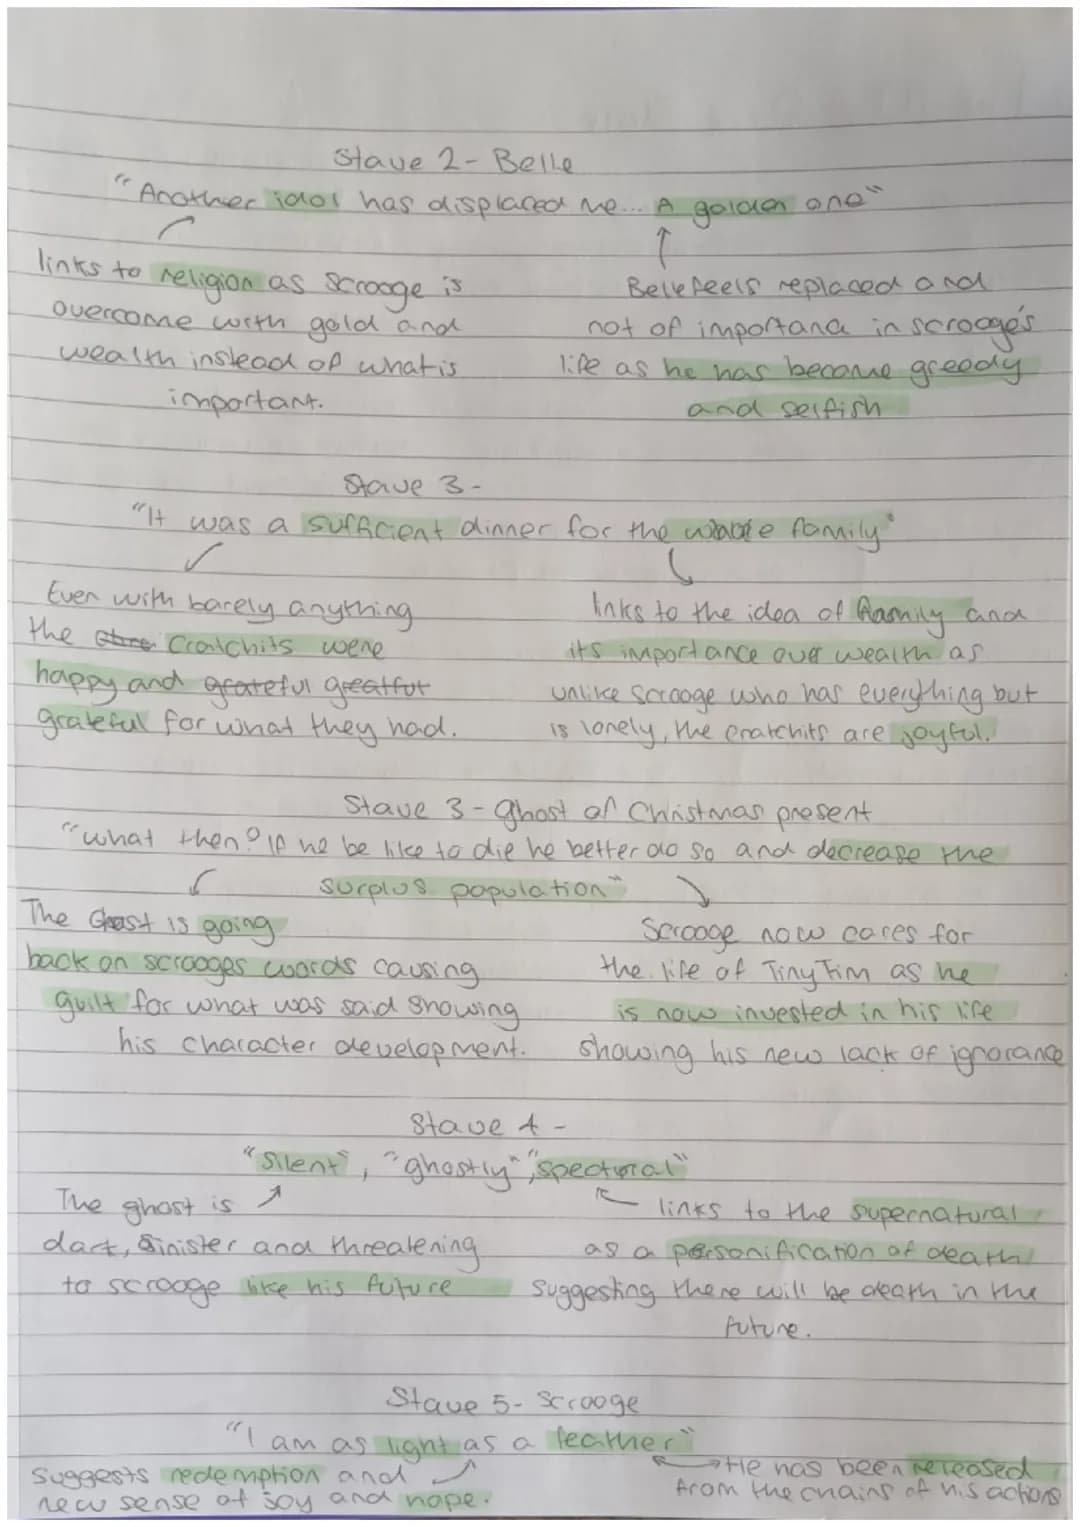 Stave 2- Belle
"Another idol has displaced me... A golden one"
links to religion as Scrooge is
overcome with gold and
wealth instead of what is
important.
Belle feels replaced and
not of importana in scrooge's
life as he has become greedy
and selfish
Stave 3-
"It was a sufficient dinner for the whole family"
Even with barely anything
the Cratchits were
happy and grateful greatfut
grateful for what they had.
links to the idea of family and
its importance over wealth as
unlike Scrooge who has everything but
is lonely, the cratchits are joyful.
Stave 3- Ghost of Christmas present
"what then? If he be like to die he better do so and decrease the
surplus population"
The Ghost is going
back on scrooges words causing
guilt for what was said showing
his character development.
Scrooge now cares for
the life of Tiny Tim as he
is now invested in his life
showing his new lack of ignorance
Stave 4-
"Silent", "ghostly", "spectural"
The ghost is
dark, Sinister and threatening
to scrooge like his future
links to the supernatural
as a personification of death
suggesting there will be death in the
future.
Stave 5- Scrooge
"I am as light as a feather"
Suggests redemption and
new sense of joy and hope.
He has been released
from the chains of his actions